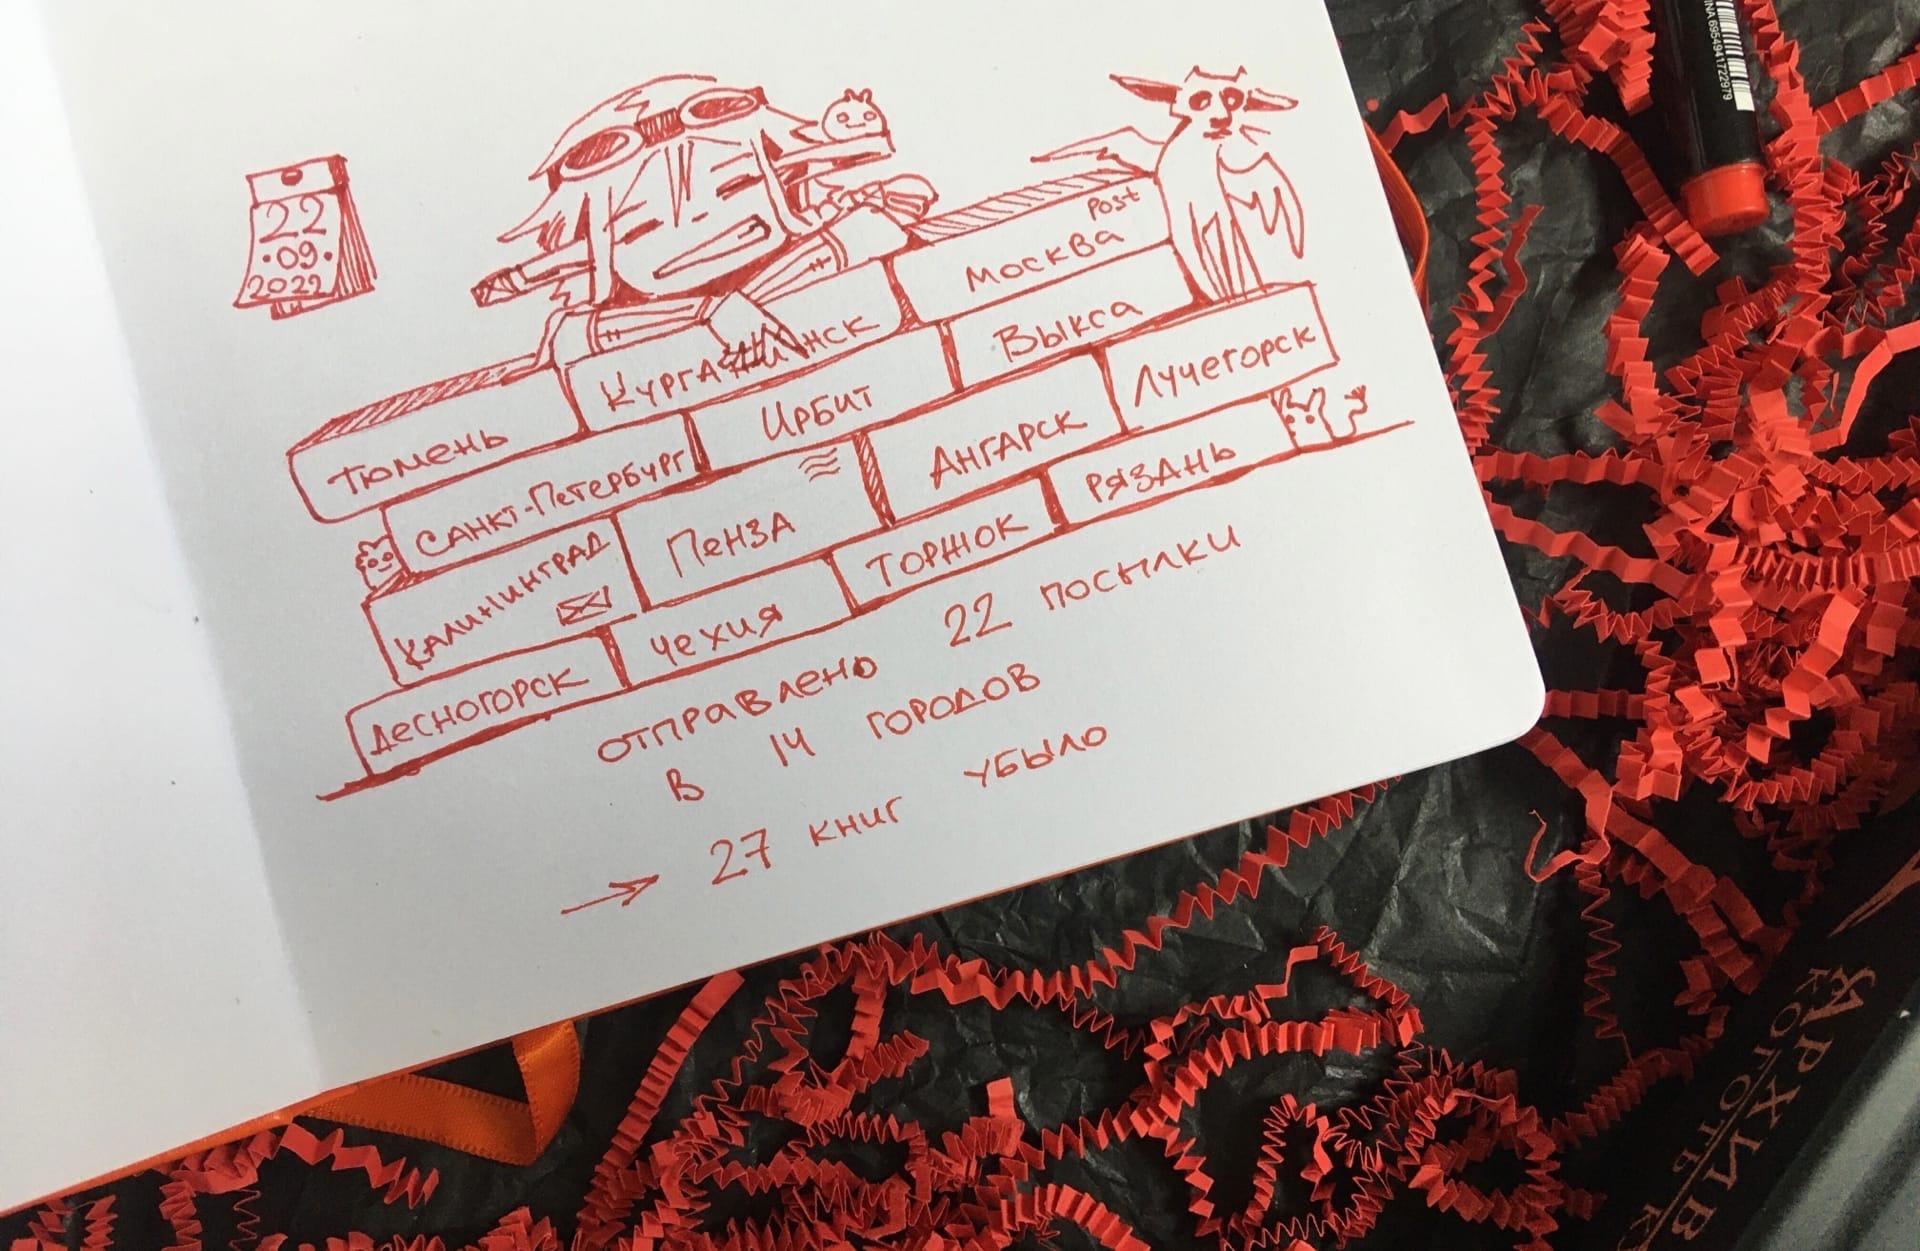 22
•09•
2022
Post
Москва
Выкса
Тюмень
Санкт-Петербург
Ирбит
Лучегорск
Калининград
Пенза
Ангарск
Десногорск
Чехия
Торжок
Рязань
отправлено 22 посылки
в 14 городов
→ 27 книг убыло
INA 6954941722979
АРХИВ
КОГОТЬ